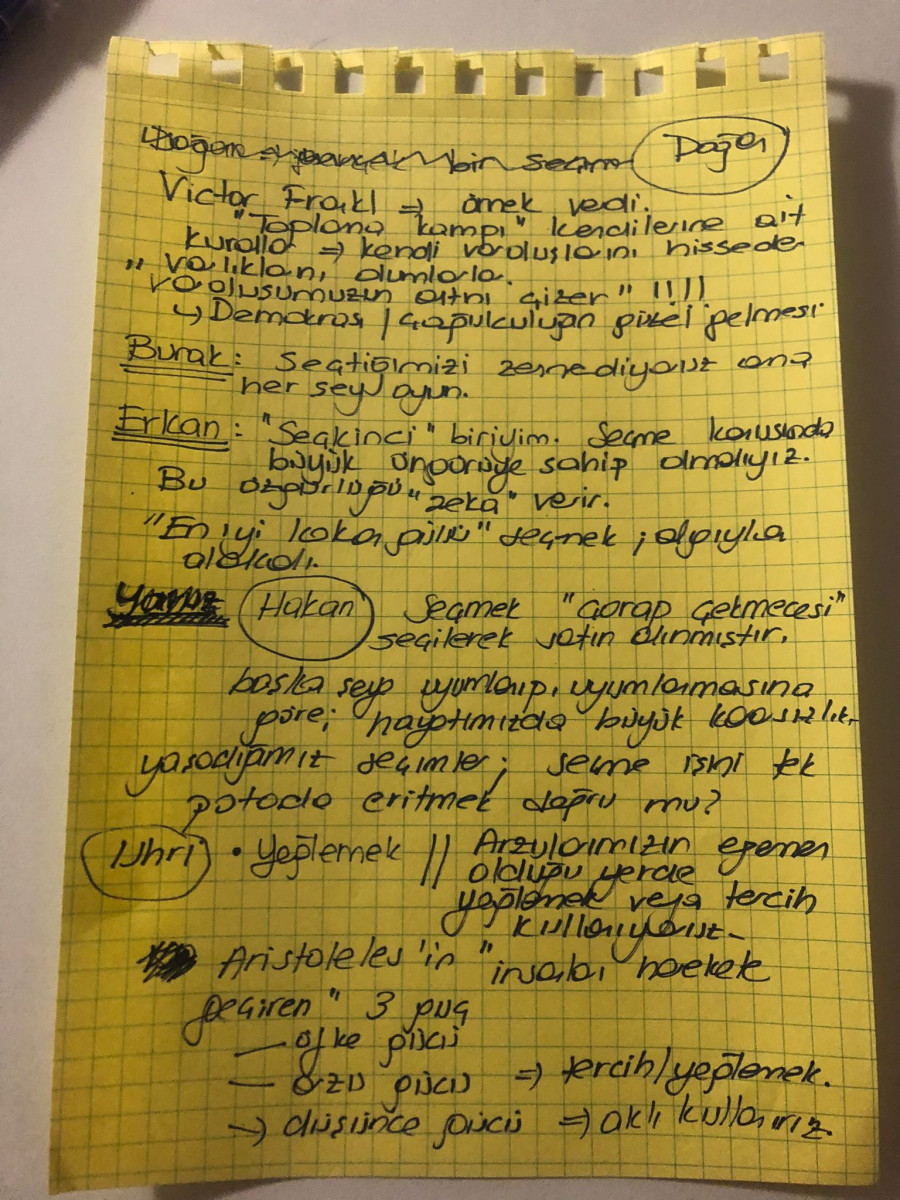 bir seçme Doğan
Victor Frankl => örnek verdi.
"Toplama kampı" kendilerine ait
kurallar => kendi varoluşlarını hisseder
" varlıklarını olumlarlar.
varoluşumuzun altını çizer" !!!!
↳ Demokrasi / çapulculuğan güzel gelmesi
Burak: Seçtiğimizi zannediyoruz ama
her şey oyun.
Erkan: "Seçkinci" biriyim. Seçme konusunda
büyük öngörüye sahip olmalıyız.
Bu özgürlüğü "zeka" verir.
"En iyi kokan gülü" seçmek ; algıyla
alakalı.
Yavuz Hakan Seçmek "çorap çekmecesi"
seçilerek satın alınmıştır.
başka şeye uyumlanıp, uyumlanmasına
göre; hayatımızda büyük kararsızlık
yaşadığımız seçimler; seçme işini tek
potada eritmek doğru mu?
Uhri • Yeğlemek || Arzularımızın egemen
olduğu yerde
yeğlemek veya tercih
kullanıyoruz-
Aristoteles'in "insanları harekete
geçiren" 3 güç
— öfke gücü
— arzu gücü => tercih/yeğlemek.
-> düşünce gücü => aklı kullanırız.